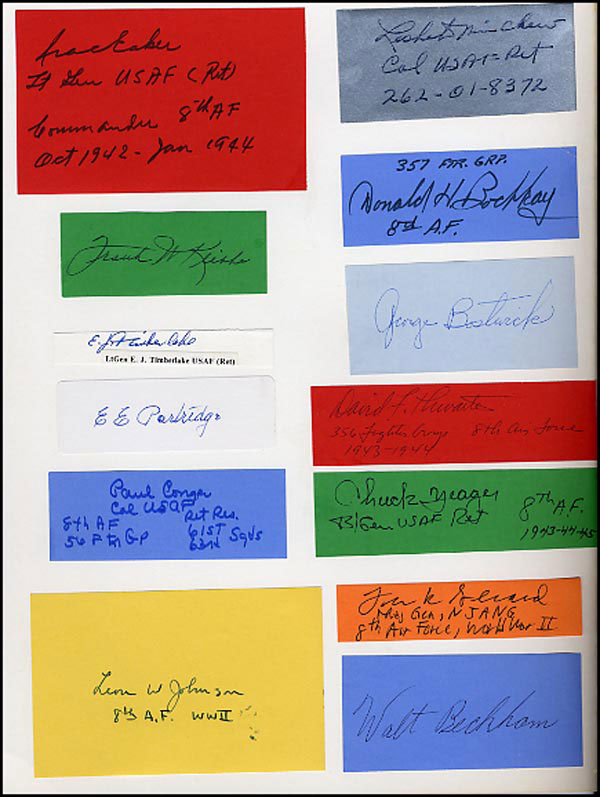 Ira C Eaker
Lt Gen USAF (Ret)
Commander 8th AF
Oct 1942 - Jan 1944
Frank
E. J. Timberlake
LtGen E. J. Timberlake USAF (Ret)
E E Partridge
Paul Conger
Col USAF
Ret Res.
8th AF
56 Ftr Gp
61ST
63rd Sqds
Leon W Johnson
8th A.F. WWII
Col USAF-Ret
357 FTR. GRP.
Donald H. Bochkay
8th A.F.
George Bostwick
David F. Thwaites
356 Fighter Group 8th Air Force
1943-1944
Chuck Yeager
B/Gen USAF Ret
8th A.F.
1943-44-45
Maj Gen, NJANG
8th Air Force, World War II
Walt Beckham